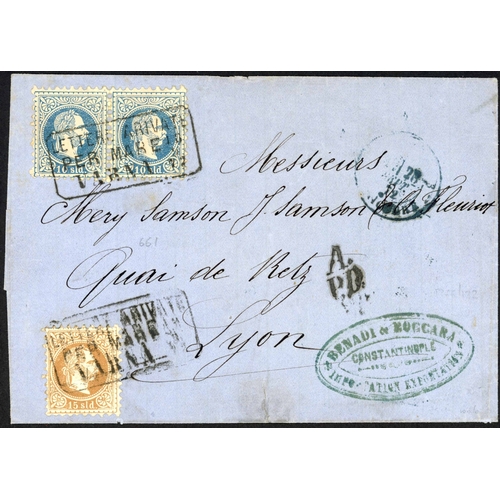 10 sld 10 sld
LETTERE ARIVATE
PER MARE
VARNA
Messieurs
Mery Samson J. Samson & C. Fleuriot
661
Quai de Retz
A.
P.D.
Lyon
LETTERE ARIVATE
PER MARE
VARNA
15 sld
BENADI & BOCCARA
CONSTANTINOPLE
IMPORTATION EXPORTATION